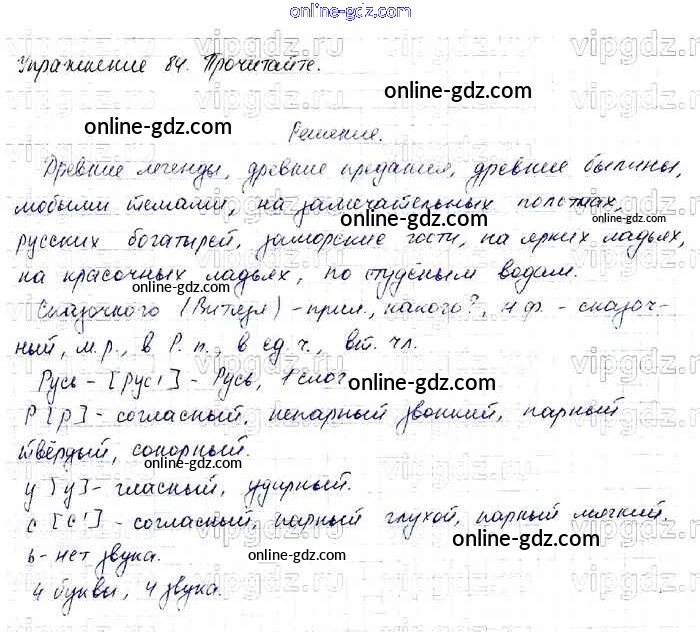 online-gdz.com
Упражнение 84. Прочитайте.
online-gdz.com
online-gdz.com
Решение.
Древние легенды, древние предания, древние былины,
любыми темами, на замечательных полотнах,
online-gdz.com
online-gdz.com
русских богатырей, заморские гости, на ярких ладьях,
на красочных ладьях, по студёным водам.
online-gdz.com
Сказочного (Витязя) - прил., какого?, н.ф. - сказоч-
ный, м.р., в Р.п., в ед.ч., вт. чл.
Русь - [рус'] - Русь, 1 слог
online-gdz.com
Р [р] - согласный, непарный звонкий, парный
твёрдый, сонорный.
online-gdz.com
у [у] - гласный, ударный.
с [с'] - согласный, парный глухой, парный мягкий.
online-gdz.com
ь - нет звука.
online-gdz.com
4 буквы, 4 звука.
online-gdz.com